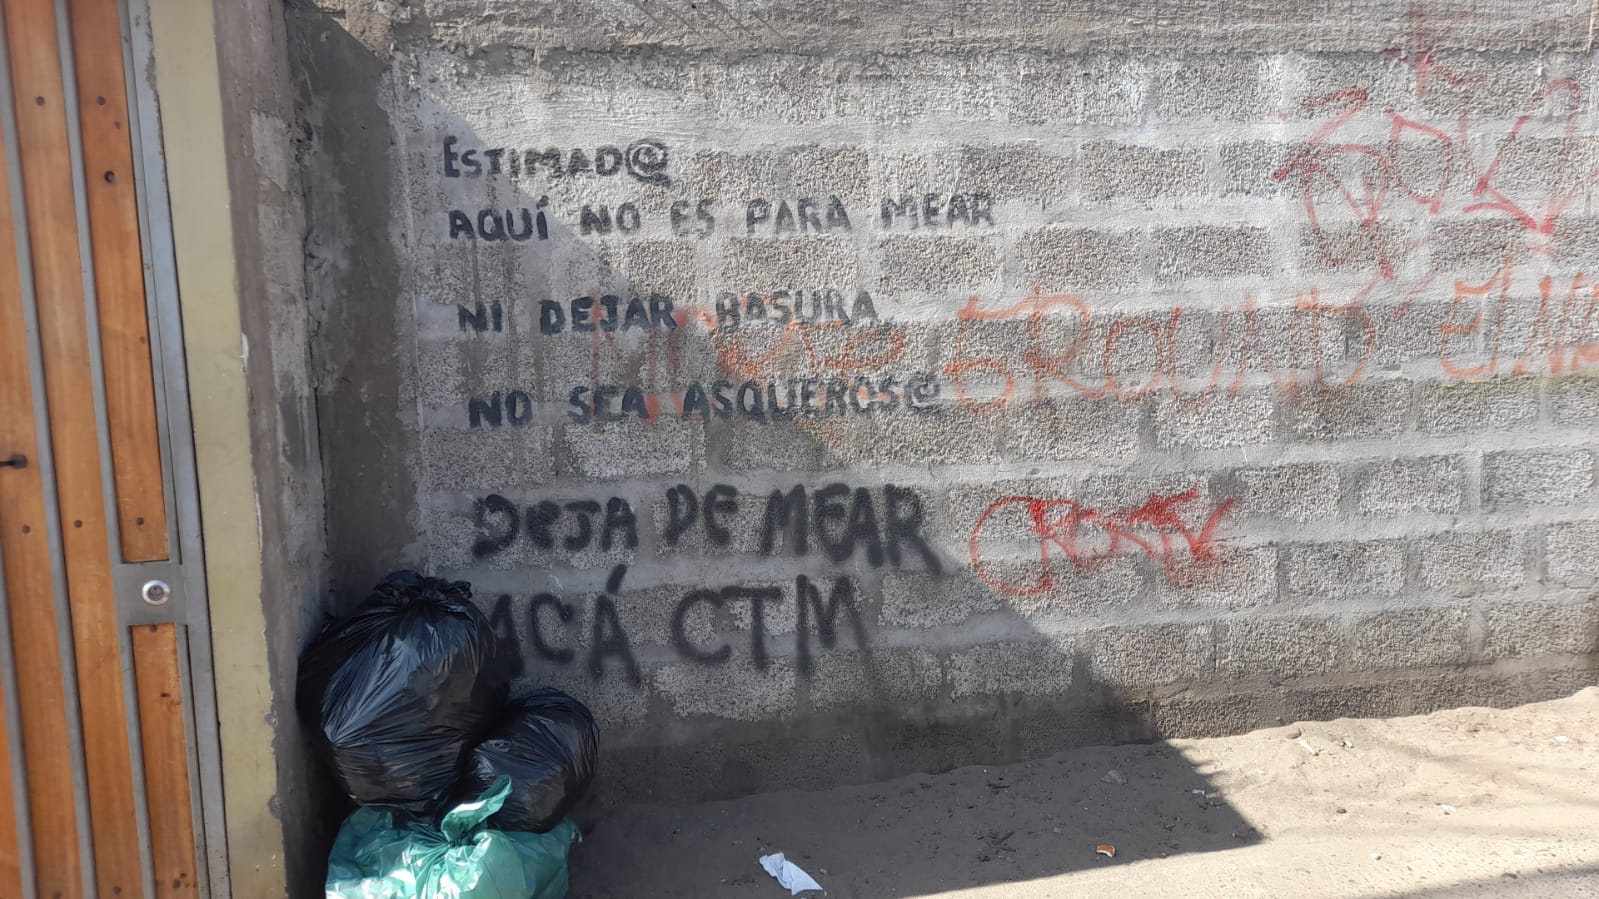 ESTIMAD@
AQUÍ NO ES PARA MEAR
NI DEJAR BASURA
NO SEA ASQUEROS@
DEJA DE MEAR
ACÁ CTM
GROUND